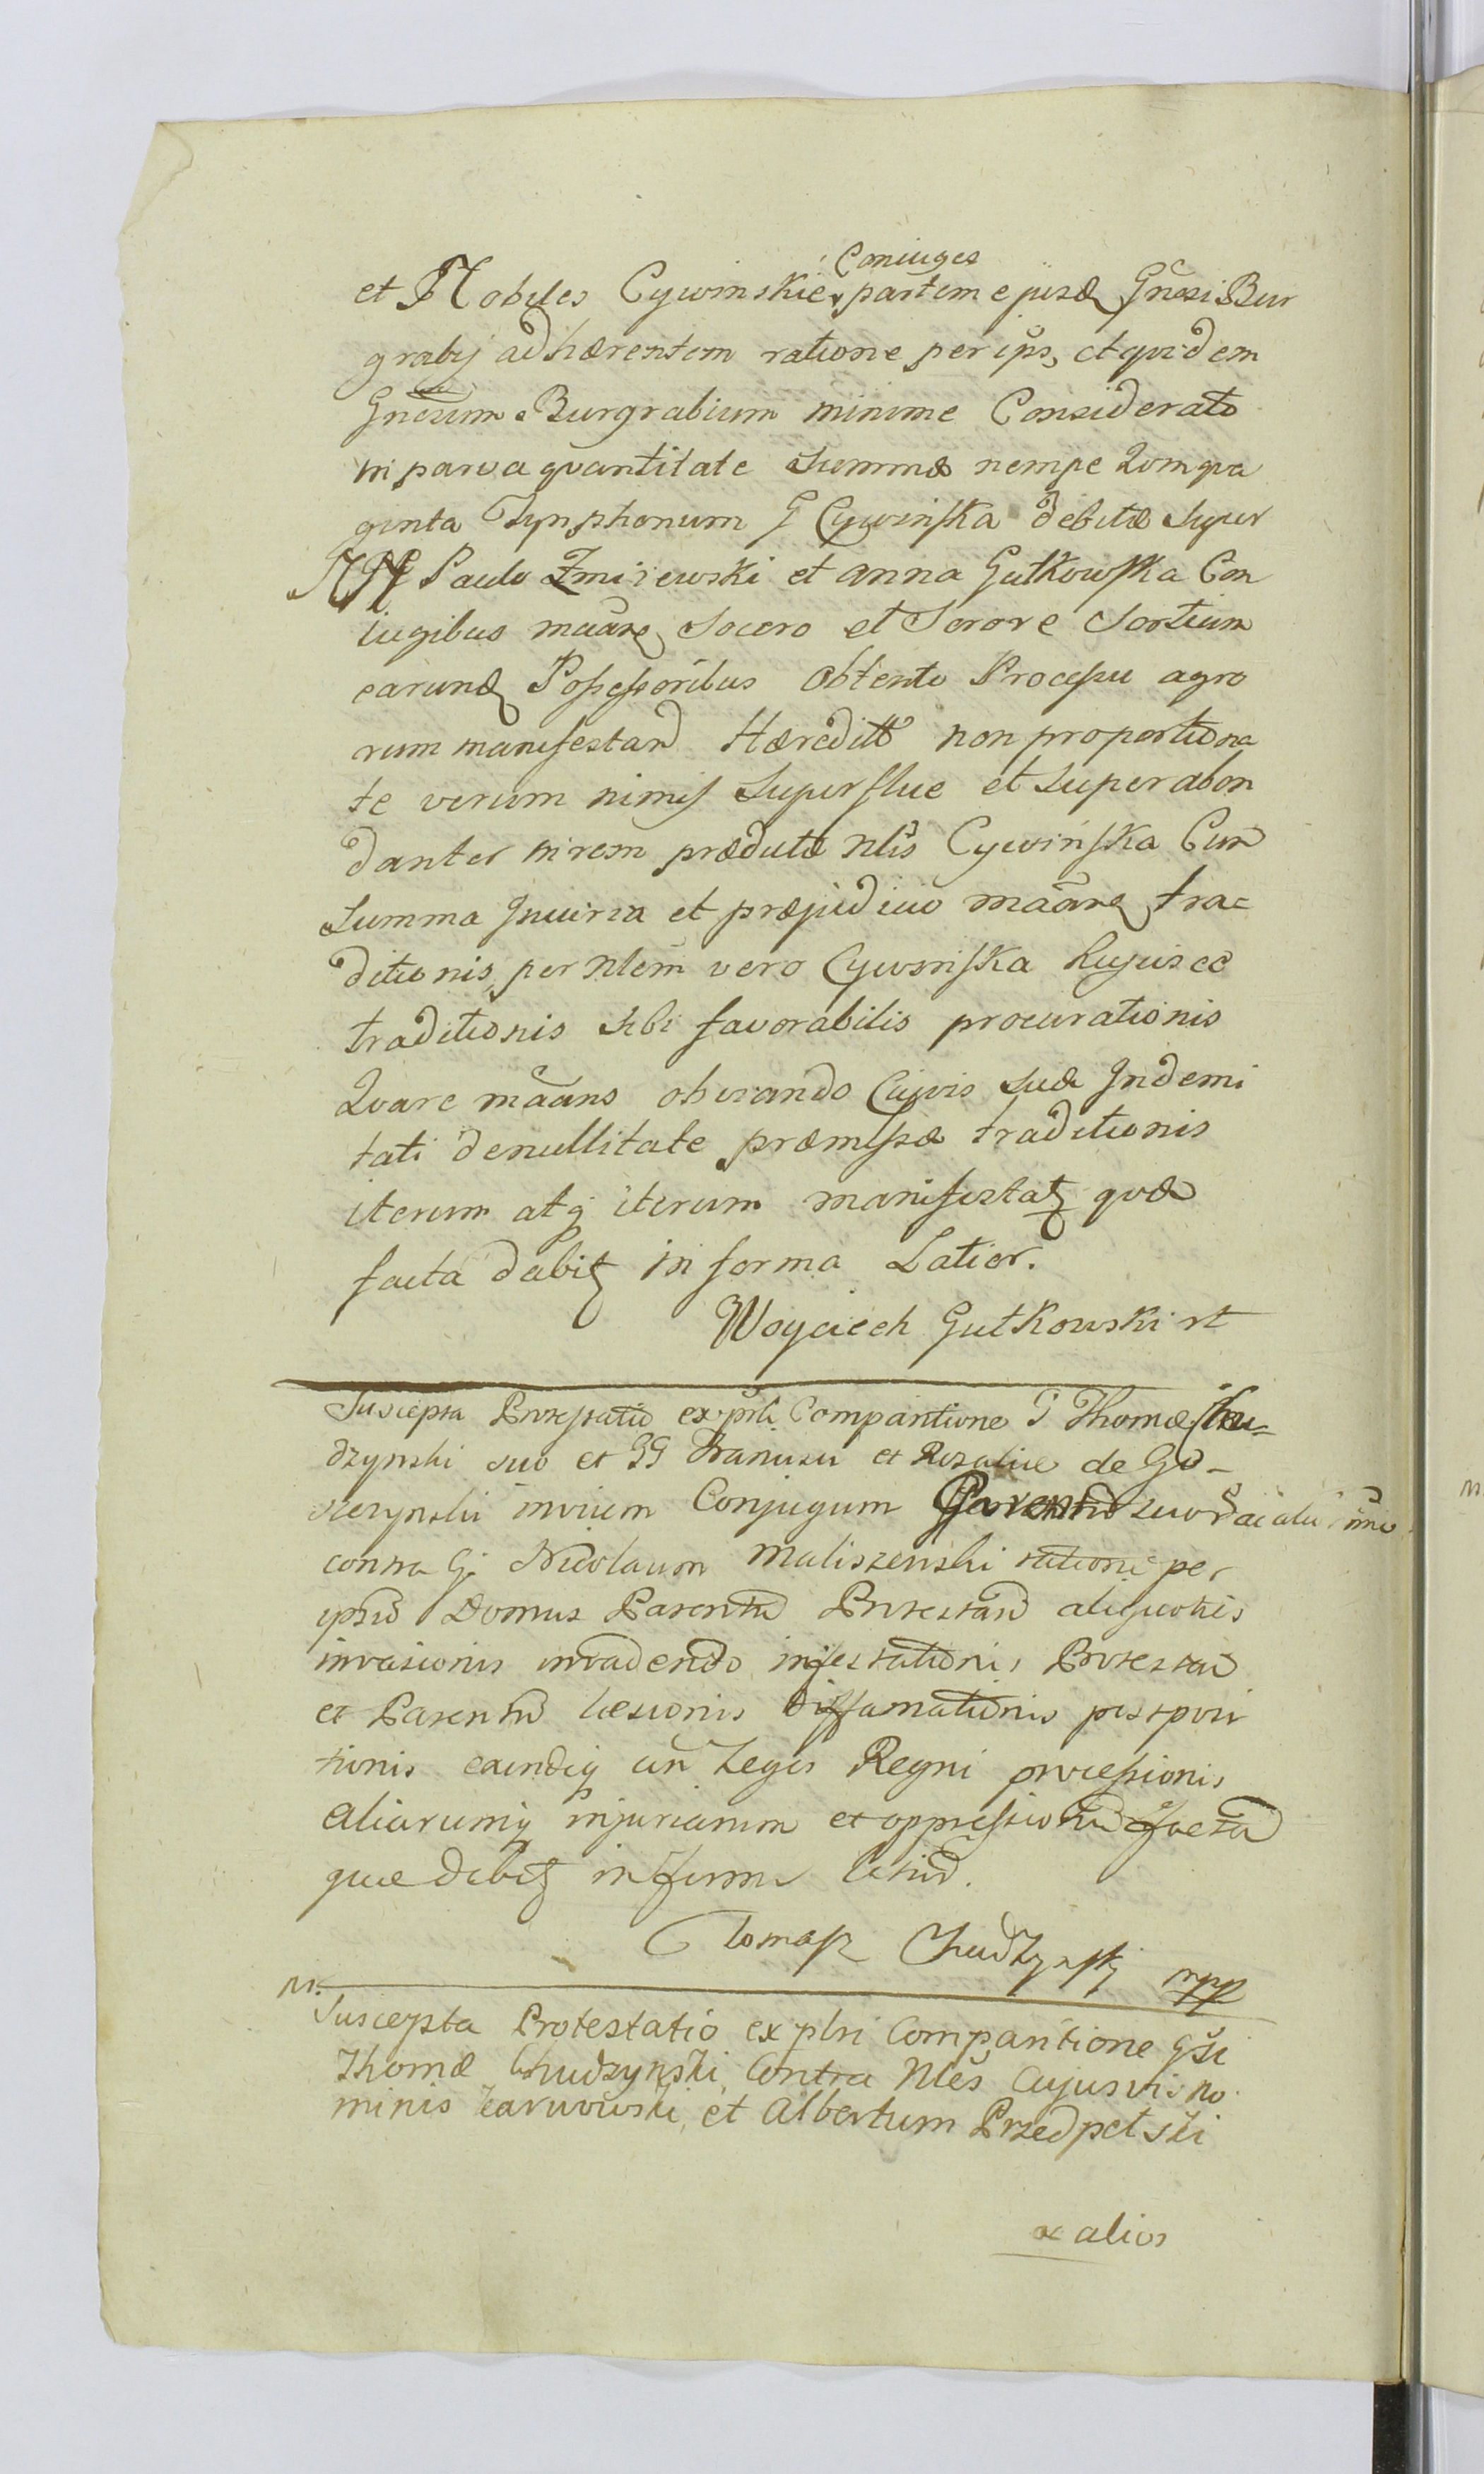 Coniuges
et Nobiles Cywinskie partem ejusd Gnosi Bur
grabij adhærentem ratione per ips, et quidem
Gnosum Burgrabium minime Considerato
in parva quantitate Summæ nempe Quinqua
ginta Tynphonum G Cywinska debitæ Super
NN Paulo Zmijewski et anna Gutkowska Con
iugibus Socero et Sorore Sortium
earund Possessoribus Obtento Processu agro
rum manifestand Hæredit non proportiona
te verum nimis Superflue et Superabon
danter in rem prædictæ Nlis Cywinska Cum
Summa Injuria et præjudicio traditionis
ditionis, per Nlem vero Cywinska hujusce
traditionis sibi favorabilis procurationis
Quare mãans obviando Cuivis suæ Indemi
tati de nullitate præmissæ traditionis
iterum atq iterum manifestat quæ
facta dabit in forma Latior.
Woyciech Gutkowski
Suscepta Protestatio ex psli Comparitione G Thomæ Chu=
dzynski suo et GG Francisci et Rosaliæ de Go-
invicem Conjugum Parentu suor
contra G. Nicolaum Maliszewski ratione per
ipsu Domus Parentu Protestan aliquoties
invasionis invadendo infestationis Protestan
et Parentu læsionis diffamationis postposi
tionis eaundiq Leges Regni processionis
aliarumq injuriarum et oppressionu facta
quæ dabit in forma latiori.
Tomasz Chudzynski mpp
M.
Suscepta Protestatio ex plsi Comparitione Gsi
Thomæ Chudzynski, Contra Nles Cujusvis no
minis et Albertum Przedpelski
& alios